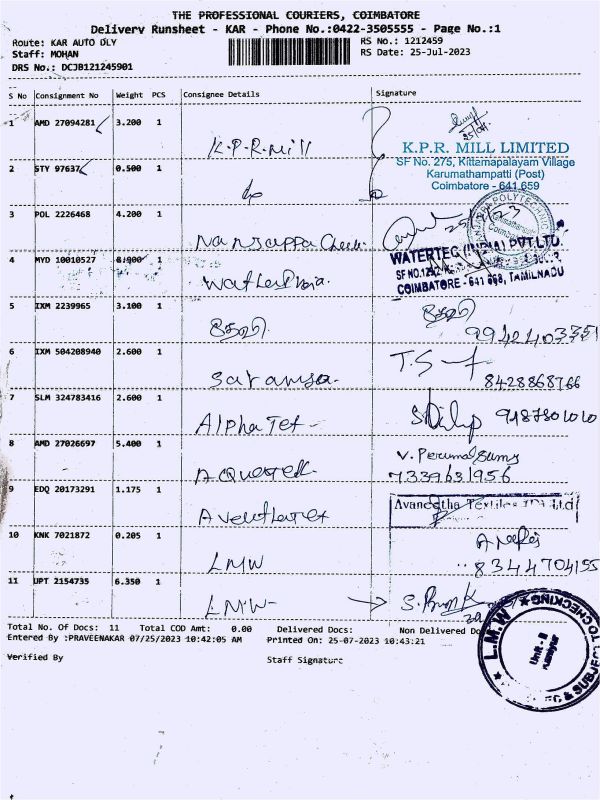 THE PROFESSIONAL COURIERS, COIMBATORE
Delivery Runsheet - KAR - Phone No.:0422-3505555 - Page No.:1
Route: KAR AUTO DLY
RS No.: 1212459
Staff: MOHAN
RS Date: 25-Jul-2023
DRS No.: DCJB121245901
S No Consignment No Weight PCS Consignee Details Signature
1 AMD 27094281 3.200 1 K.P.R. Mill
K.P.R. MILL LIMITED
SF No. 275, Kittampalayam Village
Karumathampatti (Post)
Coimbatore - 641 659
2 STY 97637 0.500 1
3 POL 2226468 4.200 1
4 MYD 10010527 8.900 1
WATERTEC (INDIA) PVT.LTD.
COIMBATORE - 641 668, TAMILNADU
5 IXM 2239965 3.100 1 சக்தி
சக்தி
9942403351
6 IXM 504208940 2.600 1
T.S
8428868766
7 SLM 324783416 2.600 1 Alpha Tet
S Dilip 9187801010
8 AMD 27026697 5.400 1
V. Perumal Samy
7339631956
9 EDQ 20173291 1.175 1
Avaneetha Textiles (P) Ltd
10 KNK 7021872 0.205 1 LMW
8344704155
11 UPT 2154735 6.350 1 LMW
Total No. Of Docs: 11 Total COD Amt: 0.00 Delivered Docs: Non Delivered Do
Entered By :PRAVEENAKAR 07/25/2023 10:42:05 AM Printed On: 25-07-2023 10:43:21
Verified By Staff Signature
L.M.W
SUBJECT TO CHECKING
Unit - II